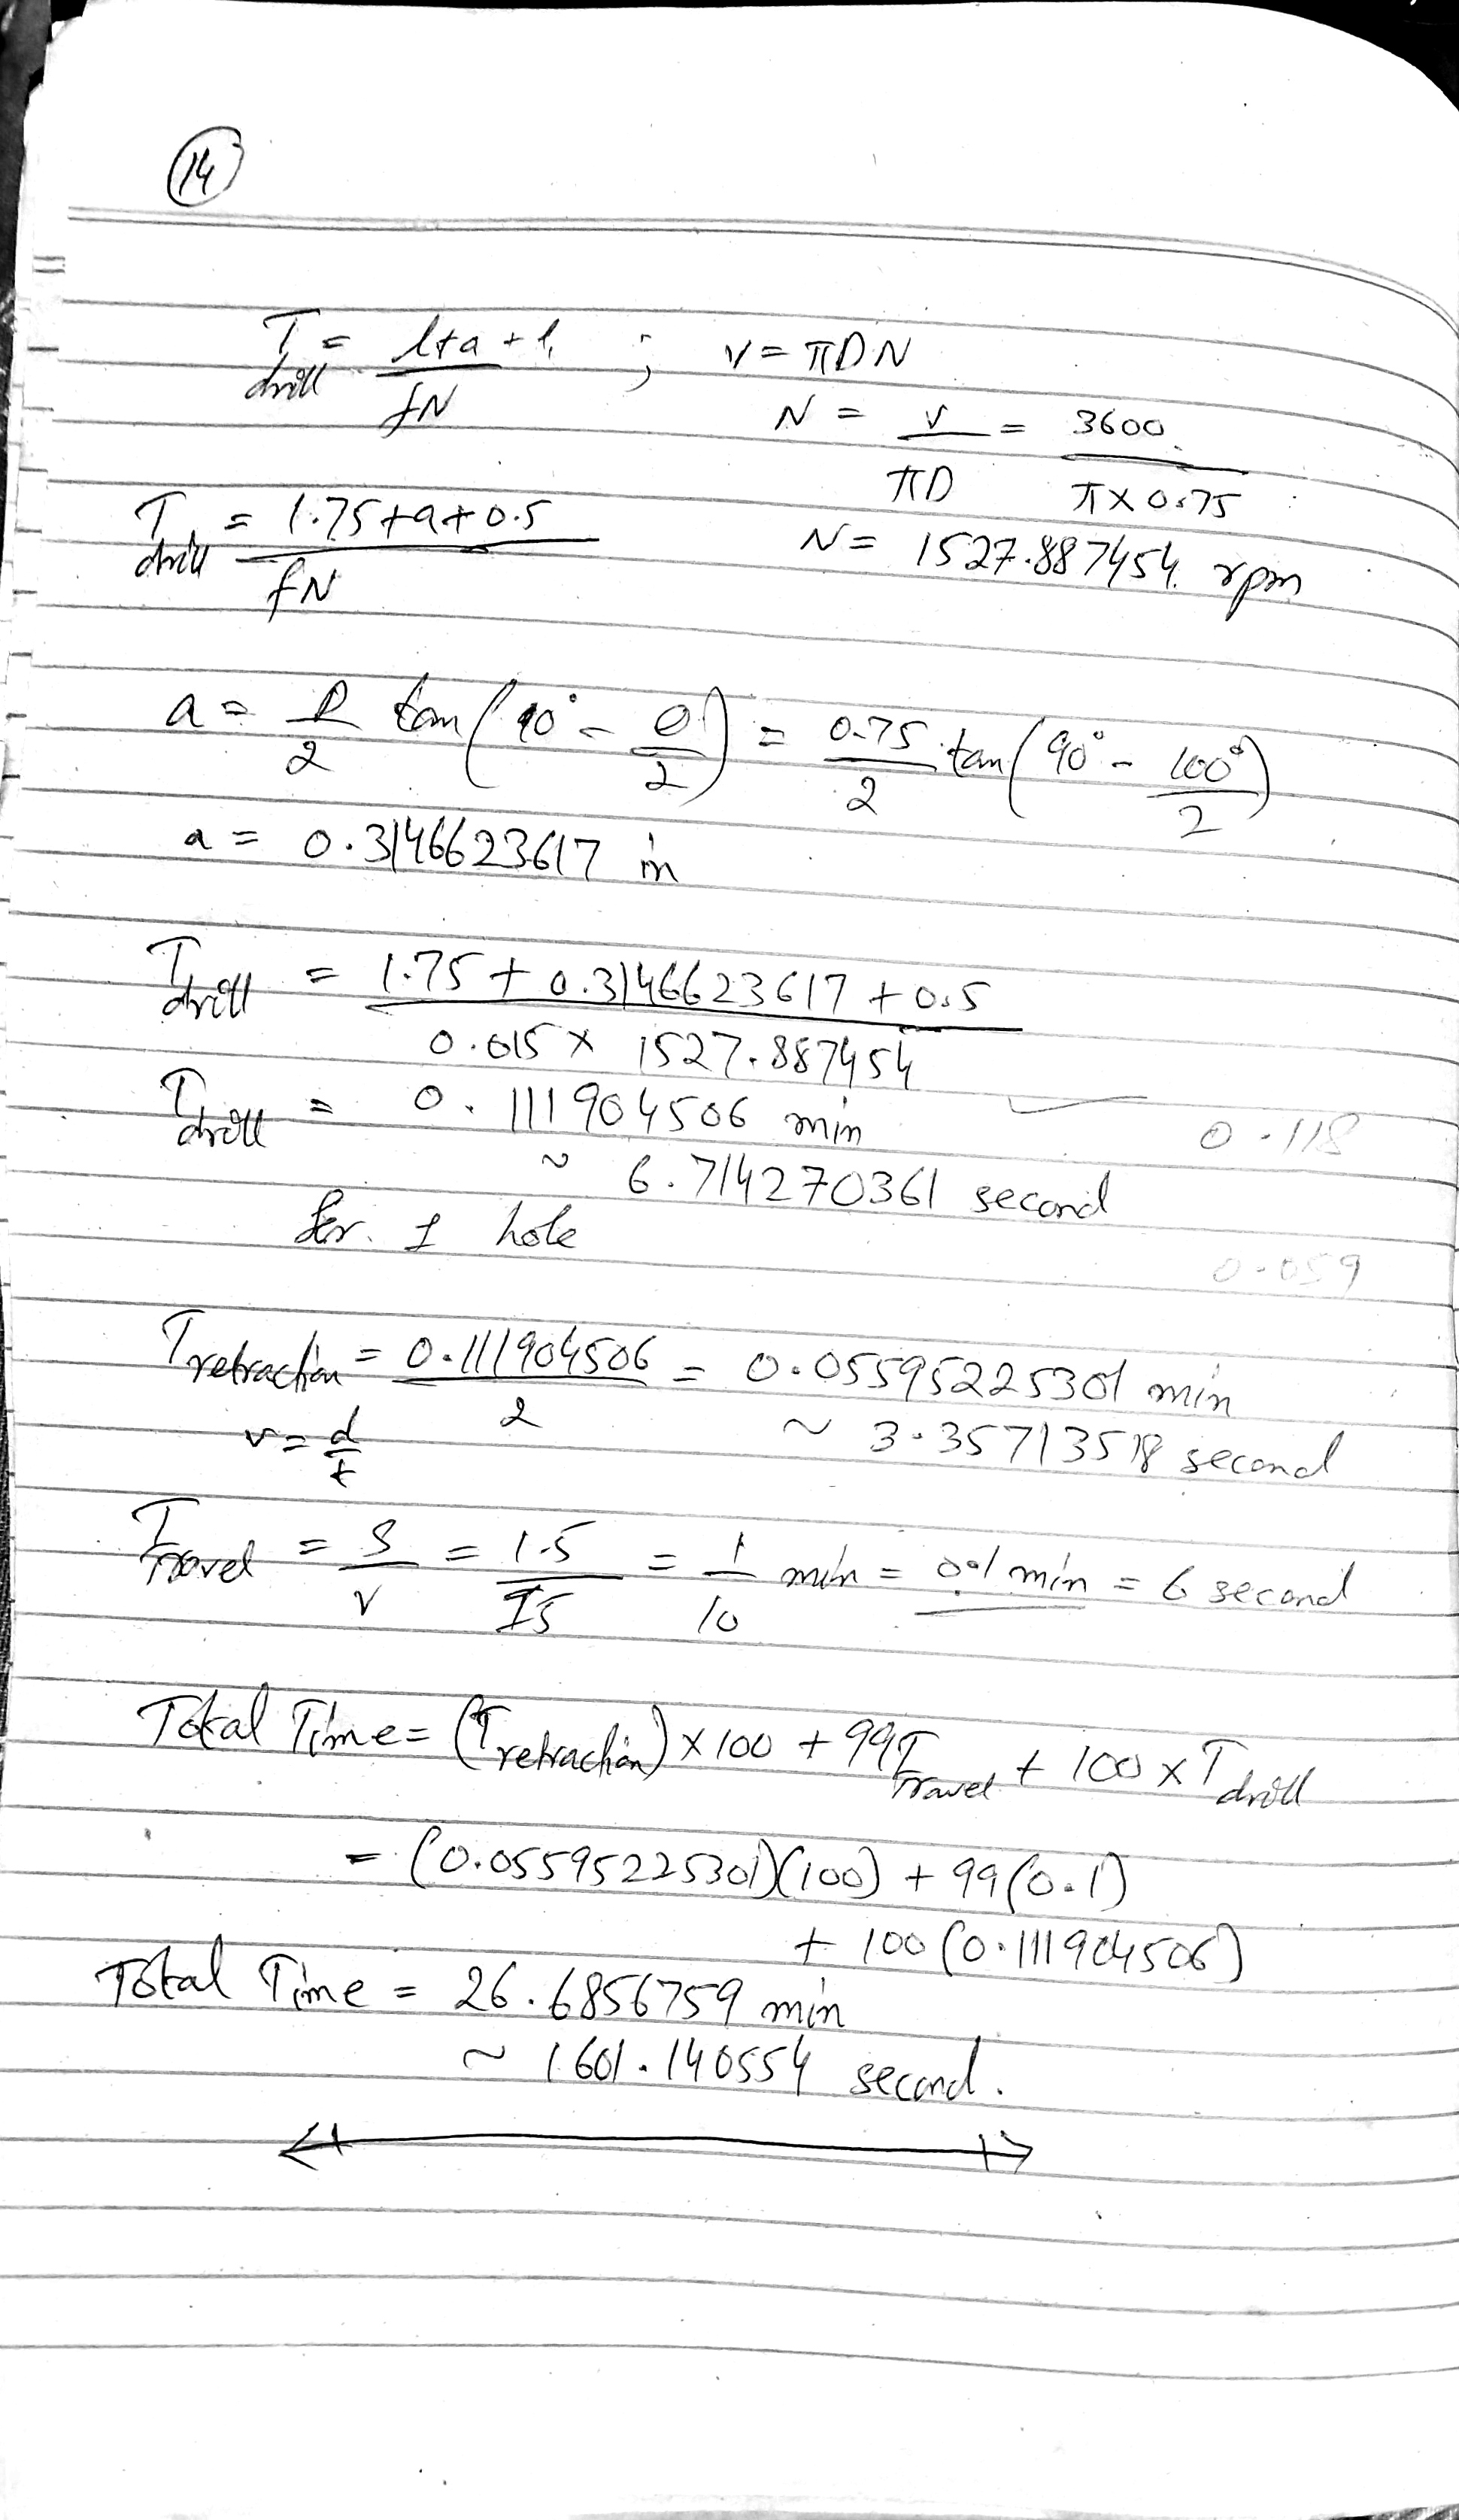 14
T drill = l+a+l₁ / fN ; v = πDN
N = v / πD = 3600 / π×0.75
T drill = 1.75+a+0.5 / fN
N = 1527.887454 rpm
a = D/2 tan(90° - θ/2) = 0.75/2 tan(90° - 100°/2)
a = 0.3146623617 in
T drill = 1.75 + 0.3146623617 + 0.5 / 0.015 × 1527.887454
T drill = 0.111904506 min
0.118
~ 6.714270361 second
for 1 hole
0.059
T retraction = 0.111904506 / 2 = 0.05595225301 min
v = d/t
~ 3.35713518 second
T Travel = S/v = 1.5/15 = 1/10 min = 0.1 min = 6 second
Total Time = (T retraction) × 100 + 99 T Travel + 100 × T drill
= (0.05595225301)(100) + 99(0.1)
+ 100 (0.111904506)
Total Time = 26.6856759 min
~ 1601.140554 second.